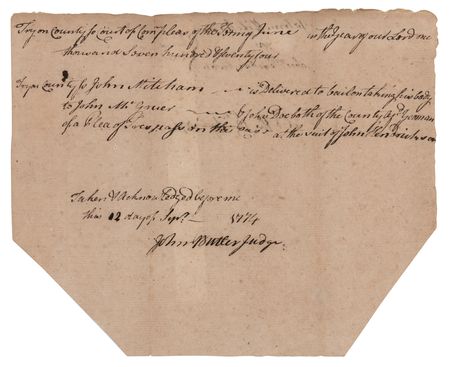 Tryon County ss Court of Com pleas of the Term of June in the Year of our Lord one
thousand Seven hundred & Seventy four
Tryon County ss John Miteham is Delivered to bail on taking his body
to John & John Doe both of the County
of a Plea of Trespass on the Case at the suit of John
Taken & Acknowledged before me
this 12 day of Sepr. 1774
John Butler Judge.